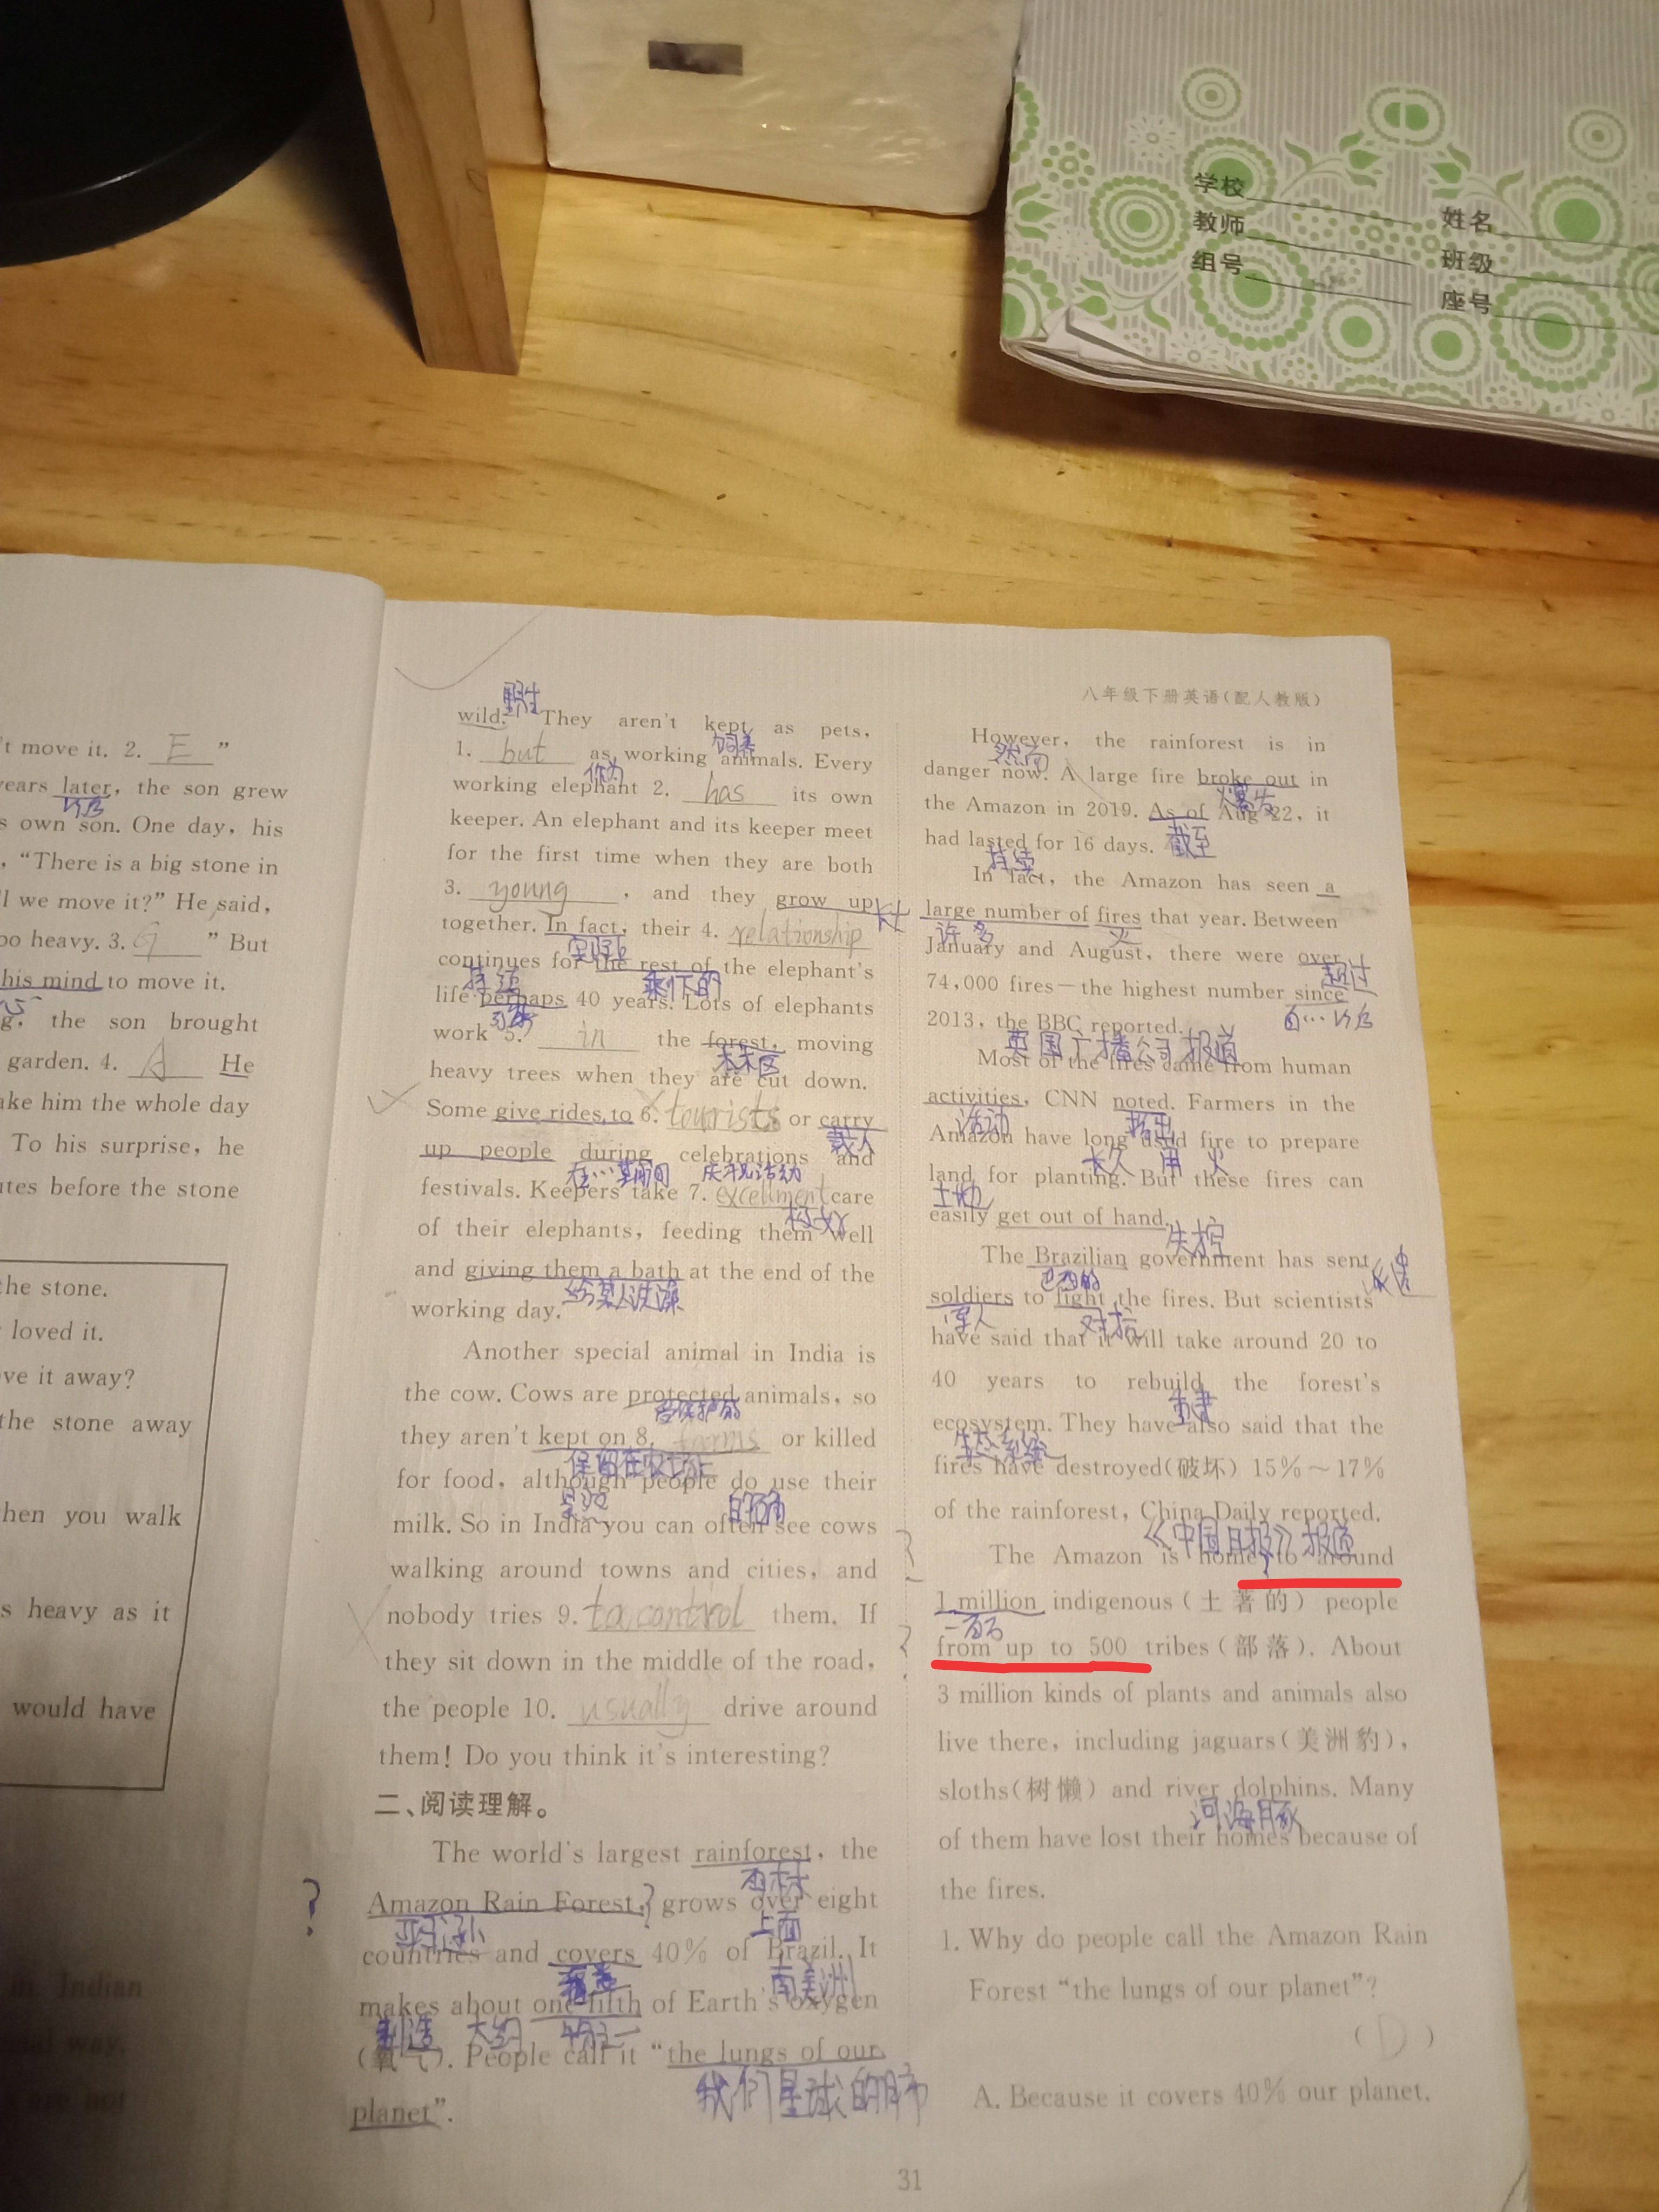 学校
教师
组号
姓名
班级
座号
't move it. 2. E ”
years later, the son grew
以后
s own son. One day, his
, “There is a big stone in
l we move it?” He said,
oo heavy. 3. G ” But
his mind to move it.
g, the son brought
garden. 4. A He
ake him the whole day
To his surprise, he
utes before the stone
the stone.
loved it.
ve it away?
the stone away
hen you walk
s heavy as it
would have
in Indian
way.
are not
野生
wild. They aren't kept as pets,
饲养
1. but as working animals. Every
作为
working elephant 2. has its own
keeper. An elephant and its keeper meet
for the first time when they are both
3. young , and they grow up
长大
together. In fact, their 4. relationship
continues for the rest of the elephant's
持续 剩下的
life perhaps 40 years. Lots of elephants
work 5. in the forest, moving
林区
heavy trees when they are cut down.
Some give rides to 6. tourists or carry
载人
up people during celebrations and
在…期间 庆祝活动
festivals. Keepers take 7. excellment care
极好
of their elephants, feeding them well
and giving them a bath at the end of the
给某人洗澡
working day.
Another special animal in India is
the cow. Cows are protected animals, so
受保护的
they aren't kept on 8. farms or killed
保留在农场
for food, although people do use their
的确
milk. So in India you can often see cows
walking around towns and cities, and
nobody tries 9. to control them. If
they sit down in the middle of the road,
the people 10. usually drive around
them! Do you think it's interesting?
二、阅读理解。
The world's largest rainforest, the
雨林
? Amazon Rain Forest,? grows over eight
亚马逊 上面
countries and covers 40% of Brazil. It
覆盖 南美洲
makes about one-fifth of Earth's oxygen
制造 大约
(氧气). People call it “the lungs of our
我们星球的肺
planet”.
八年级下册英语(配人教版)
However, the rainforest is in
然而
danger now. A large fire broke out in
爆发
the Amazon in 2019. As of Aug 22, it
截至
had lasted for 16 days.
持续
In fact, the Amazon has seen a
large number of fires that year. Between
许多 火
January and August, there were over
超过
74,000 fires—the highest number since
自…以后
2013, the BBC reported.
英国广播公司报道
Most of the fires came from human
activities, CNN noted. Farmers in the
活动 指出
Amazon have long used fire to prepare
长久 用 火
land for planting. But these fires can
土地
easily get out of hand.
失控
The Brazilian government has sent
巴西的
soldiers to fight the fires. But scientists
军人 对抗
have said that it will take around 20 to
40 years to rebuild the forest's
重建
ecosystem. They have also said that the
生态系统
fires have destroyed(破坏) 15%～17%
of the rainforest, China Daily reported.
《中国日报》报道
The Amazon is home to around
1 million indigenous(土著的) people
一百万
from up to 500 tribes(部落). About
3 million kinds of plants and animals also
live there, including jaguars(美洲豹),
sloths(树懒) and river dolphins. Many
河海豚
of them have lost their homes because of
the fires.
1. Why do people call the Amazon Rain
Forest “the lungs of our planet”?
( D )
A. Because it covers 40% our planet.
31